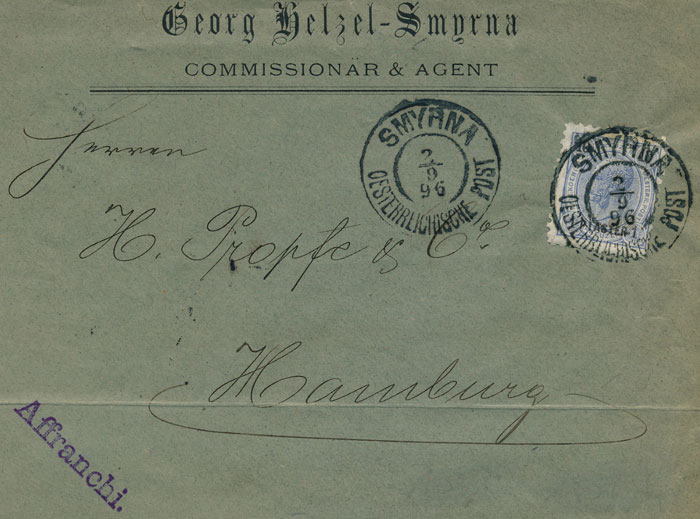 Georg Helzel-Smyrna
COMMISSIONÄR & AGENT
SMYRNA
2
9
96
OESTERREICHISCHE POST
SMYRNA
2
9
96
OESTERREICHISCHE POST
Herren
H. Propfe & Co.
Hamburg
Affranchi.